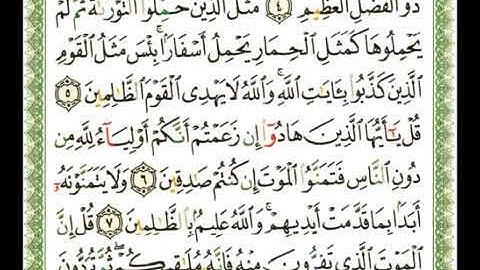 ذُو ٱلْفَضْلِ ٱلْعَظِيمِ ٤ مَثَلُ ٱلَّذِينَ حُمِّلُوا۟ ٱلتَّوْرَىٰةَ ثُمَّ لَمْ
يَحْمِلُوهَا كَمَثَلِ ٱلْحِمَارِ يَحْمِلُ أَسْفَارًۢا ۚ بِئْسَ مَثَلُ ٱلْقَوْمِ
ٱلَّذِينَ كَذَّبُوا۟ بِـَٔايَـٰتِ ٱللَّهِ ۚ وَٱللَّهُ لَا يَهْدِى ٱلْقَوْمَ ٱلظَّـٰلِمِينَ ٥
قُلْ يَـٰٓأَيُّهَا ٱلَّذِينَ هَادُوٓا۟ إِن زَعَمْتُمْ أَنَّكُمْ أَوْلِيَآءُ لِلَّهِ مِن
دُونِ ٱلنَّاسِ فَتَمَنَّوُا۟ ٱلْمَوْتَ إِن كُنتُمْ صَـٰدِقِينَ ٦ وَلَا يَتَمَنَّوْنَهُۥٓ
أَبَدًۢا بِمَا قَدَّمَتْ أَيْدِيهِمْ ۚ وَٱللَّهُ عَلِيمٌۢ بِٱلظَّـٰلِمِينَ ٧ قُلْ إِنَّ
ٱلْمَوْتَ ٱلَّذِى تَفِرُّونَ مِنْهُ فَإِنَّهُۥ مُلَـٰقِيكُمْ ۖ ثُمَّ تُرَدُّونَ